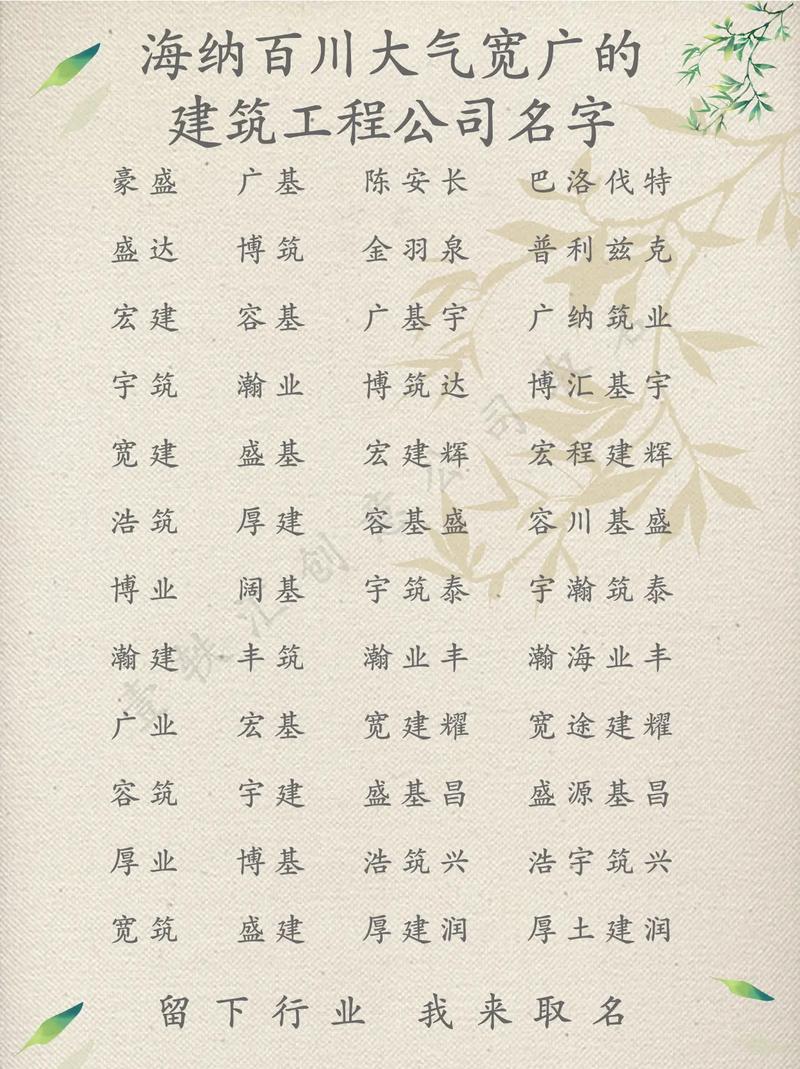 海纳百川大气宽广的
建筑工程公司名字
豪盛 广基 陈安长 巴洛伐特
盛达 博筑 金羽泉 普利兹克
宏建 容基 广基宇 广纳筑业
宇筑 瀚业 博筑达 博汇基宇
宽建 盛基 宏建辉 宏程建辉
浩筑 厚建 容基盛 容川基盛
博业 阔基 宇筑泰 宇瀚筑泰
瀚建 丰筑 瀚业丰 瀚海业丰
广业 宏基 宽建耀 宽途建耀
容筑 宇建 盛基昌 盛源基昌
厚业 博基 浩筑兴 浩宇筑兴
宽筑 盛建 厚建润 厚土建润
留下行业 我来取名